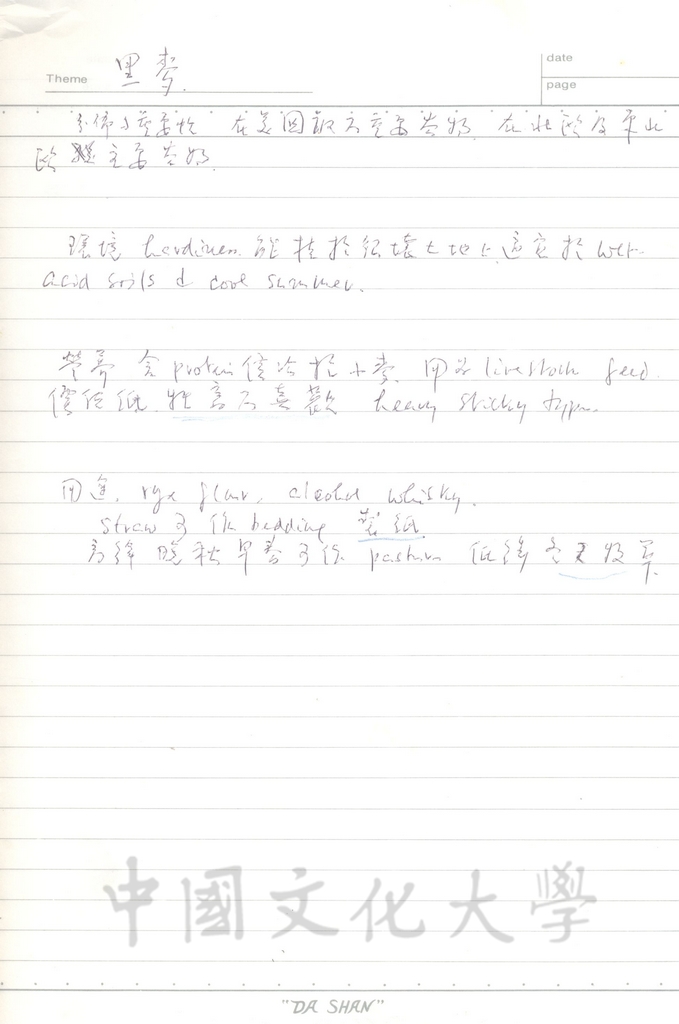 Theme 黑麥
date
page
分佈与重要性 在美國最不重要谷物 在北歐及東北
歐 主要谷物
環境 hardiness 能植於很壞土地上 適宜於 wet-
acid soils & cool summer.
營養 含 protein 價次於小麥. 用為 livestock feed.
價值低. 牲畜不喜歡 heavy sticky type.
用途. rye flour, alcohol whisky.
straw 可作 bedding 製紙
高緯 晚秋早春可作 pasture 低緯冬天牧草.
中國文化大學
"DA SHAN"